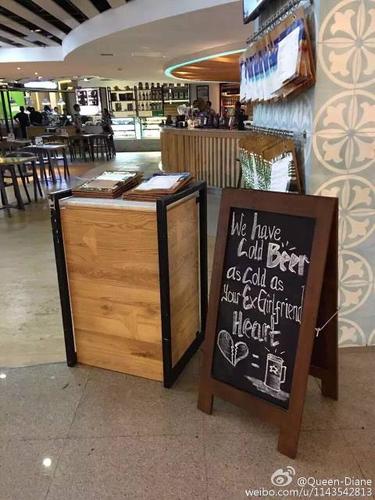 We have
Cold Beer
as Cold as
Your Ex Girlfriend
Heart
=
@Queen-Diane
weibo.com/u/1143542813